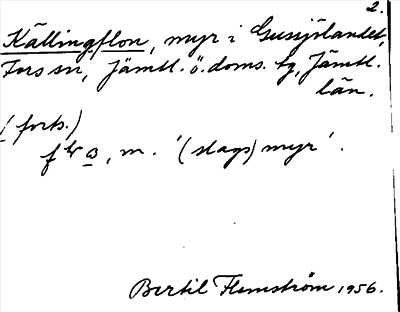 2.
Källingflon, myr i Gussjölandet,
Fors sn, Jämtl. ö. doms. tg, Jämtl.
län.
(forts.)
m. '(slags) myr'.
Bertil Flemström 1956.